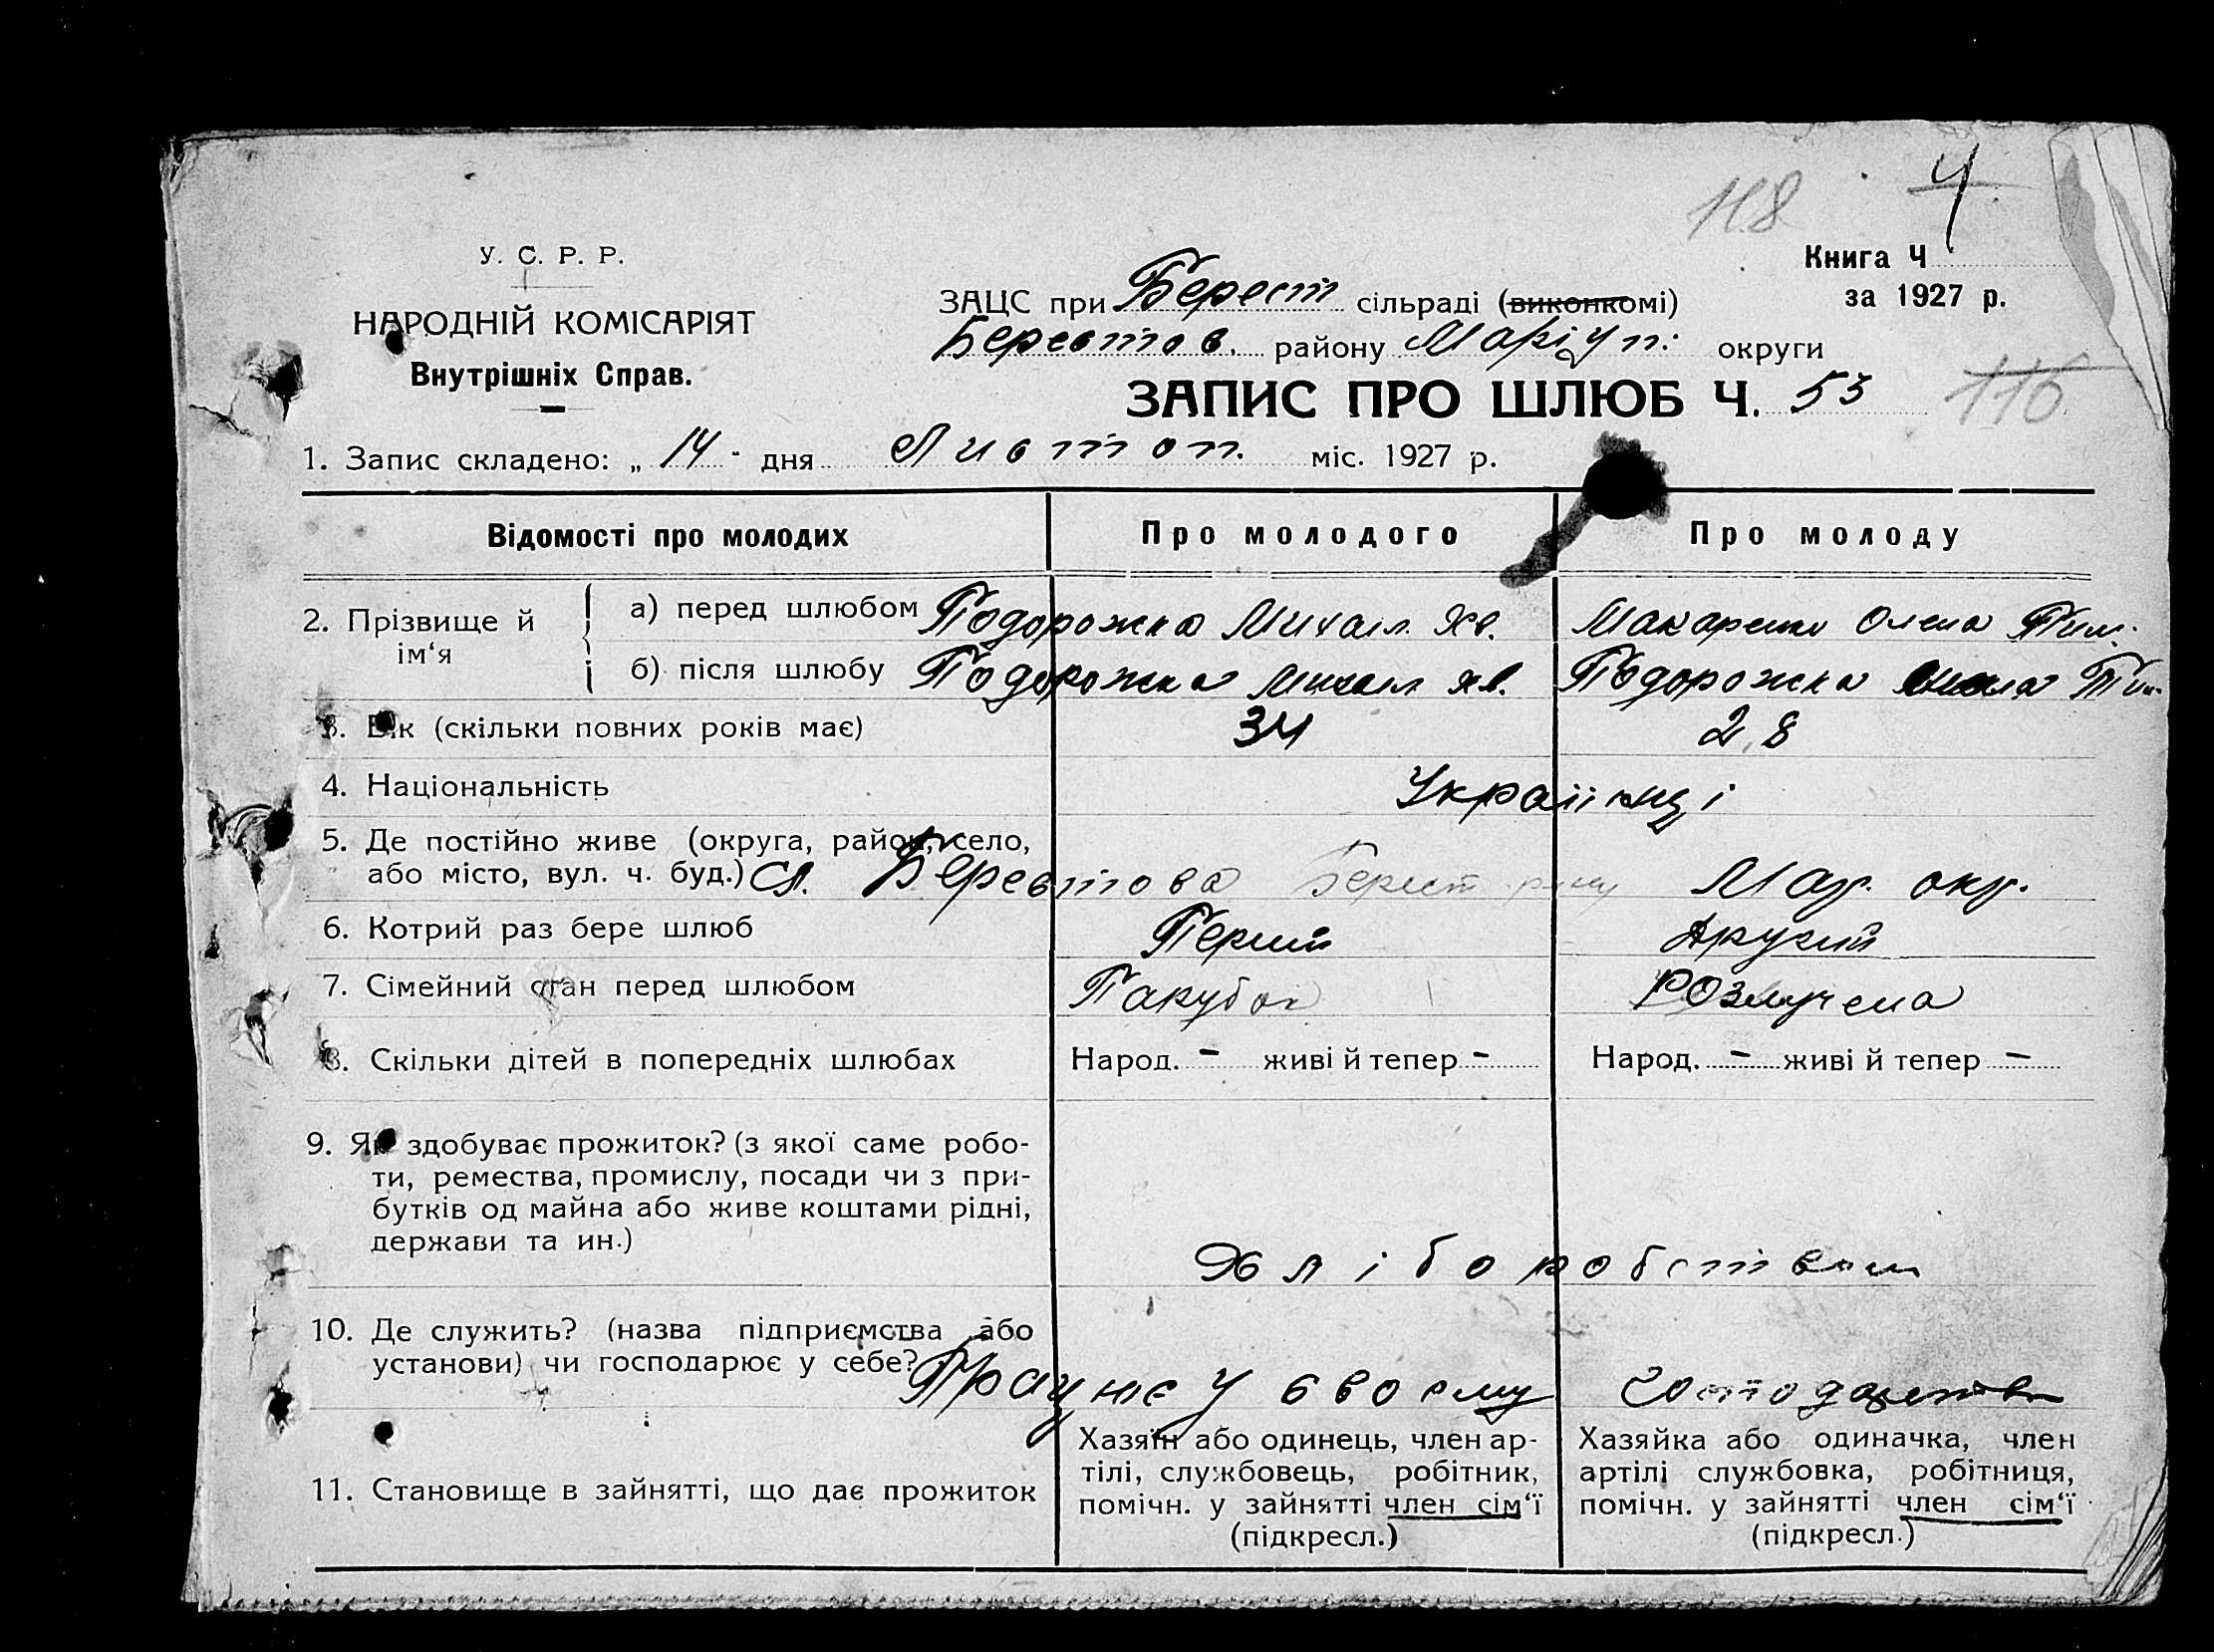 118 4
У. С. Р. Р.
НАРОДНІЙ КОМІСАРІЯТ
Внутрішніх Справ.
Книга Ч
за 1927 р.
ЗАЦС при Берест сільраді (виконкомі)
Берестов. району Маріуп. округи
ЗАПИС ПРО ШЛЮБ Ч. 53
116
1. Запис складено: „ 14 - дня Листоп. міс. 1927 р.
Відомості про молодих Про молодого Про молоду
2. Прізвище й ім‘я
а) перед шлюбом Подорожка Михаил Хв. Макаренко Олена Тим.
б) після шлюбу Подорожка Михаил Хв. Подорожка Тим.
3. Вік (скільки повних років має) 34 28
4. Національність Українці
5. Де постійно живе (округа, район, село,
або місто, вул. ч. буд.) сл. Берестова Берест. Мар. окр.
6. Котрий раз бере шлюб Перший Другий
7. Сімейний стан перед шлюбом Парубок Розлучена
8. Скільки дітей в попередніх шлюбах Народ. – живі й тепер – Народ. – живі й тепер –
9. Як здобуває прожиток? (з якої саме робо-
ти, ремества, промислу, посади чи з при-
бутків од майна або живе коштами рідні,
держави та ин.)
Хліборобством
10. Де служить? (назва підприємства або
установи) чи господарює у себе? Працює у своєму господарстві
11. Становище в зайнятті, що дає прожиток
Хазяїн або одинець, член ар-
тілі, службовець, робітник,
помічн. у зайнятті член сім‘ї
(підкресл.)
Хазяйка або одиначка, член
артілі службовка, робітниця,
помічн. у зайнятті член сім‘ї
(підкресл.)